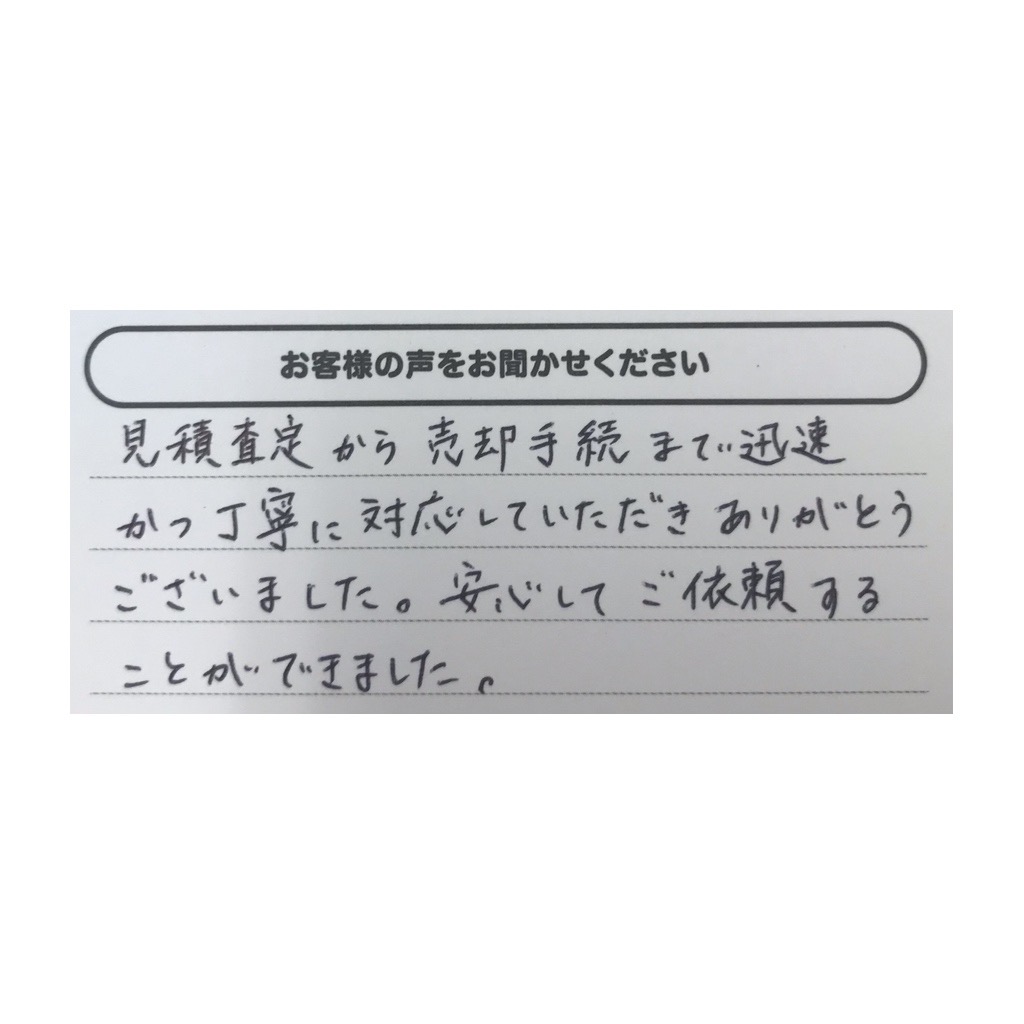 お客様の声をお聞かせください
見積査定から売却手続まで迅速
かつ丁寧に対応していただきありがとう
ございました。安心してご依頼する
ことができました。